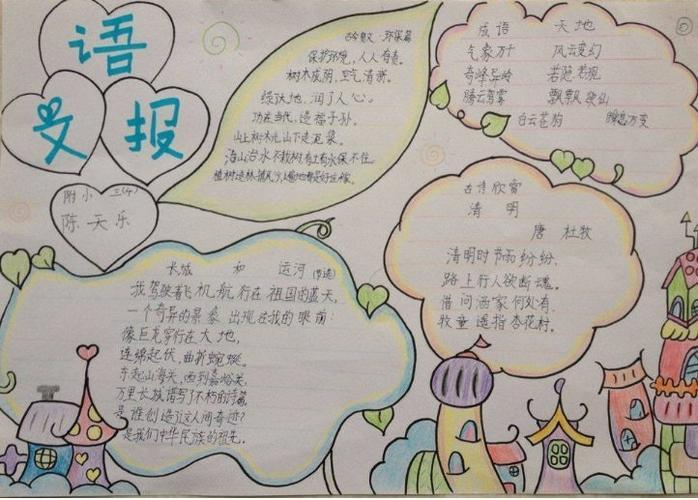 语
文
报
附小 三(4)
陈天乐
保护环境，人人有责。
树木成阴，空气清新。
绿达地，润了人心。
功在当代，造福子孙。
山上树木光，山下走泥荒。
成语 天地
气象万千 风云变幻
奇峰异岭 若隐若现
腾云驾雾 飘飘欲仙
白云苍狗 瞬息万变
古诗欣赏
清 明
唐 杜牧
清明时节雨纷纷，
路上行人欲断魂。
借问酒家何处有，
牧童遥指杏花村。
长城 和 运河(节选)
我驾驶着飞机航行在祖国的蓝天，
一个奇异的景象出现在我的眼前：
像巨龙穿行在大地，
连绵起伏，曲折蜿蜒。
东起山海关，西到嘉峪关，
万里长城谱写了不朽的诗篇
是谁创造了这人间奇迹？
是我们中华民族的祖先。